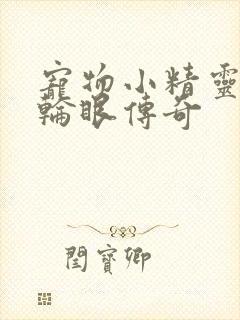 寵物小精靈
輪眼傳奇
閆寶卿